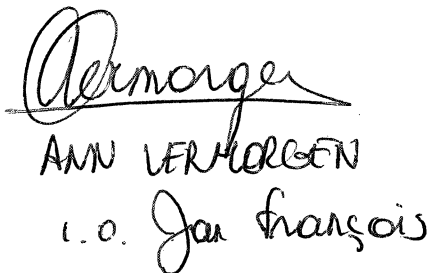 AVermorgen
ANN VERMORGEN
i.o. Jan François